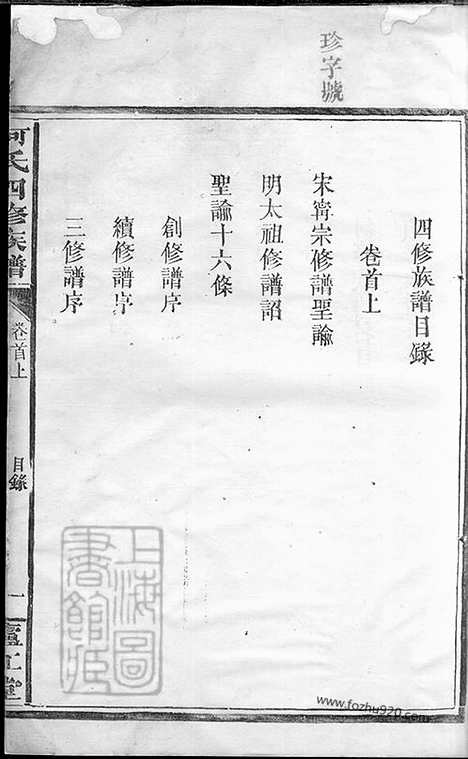 珍字號
四修族譜目錄
卷首上
宋甯宗修譜聖諭
明太祖修譜詔
聖諭十六條
創修譜序
續修譜序
三修譜序
何氏四修族譜
卷首上
目錄
一
廬江堂
上海圖書館藏
www.fozhu920.com